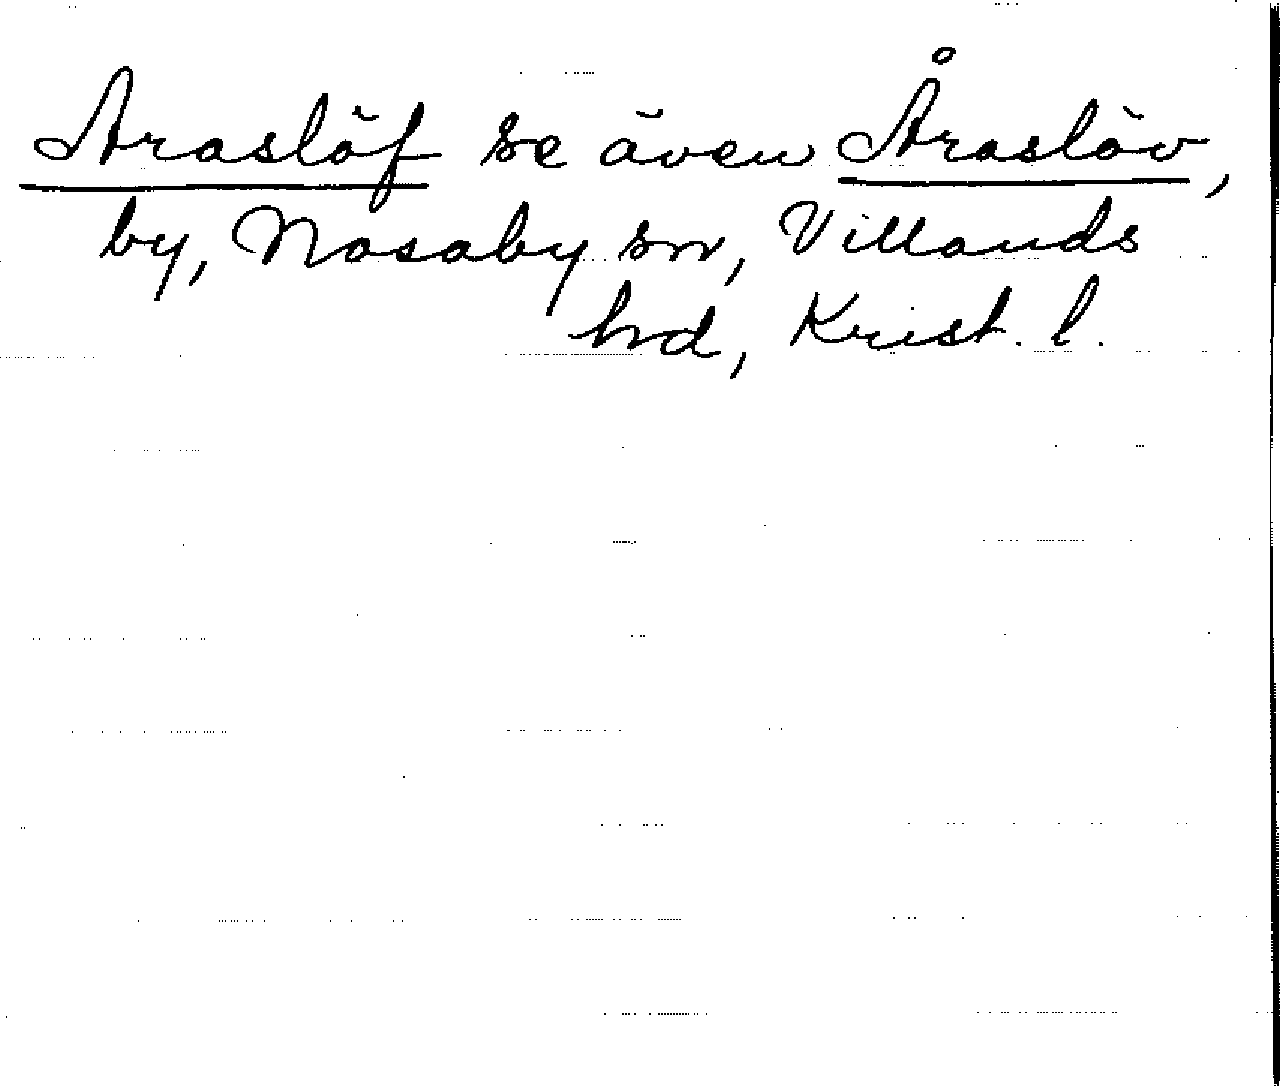 Araslöf se även Åraslöv,
by, Nosaby sn, Villands
hd, Krist. l.